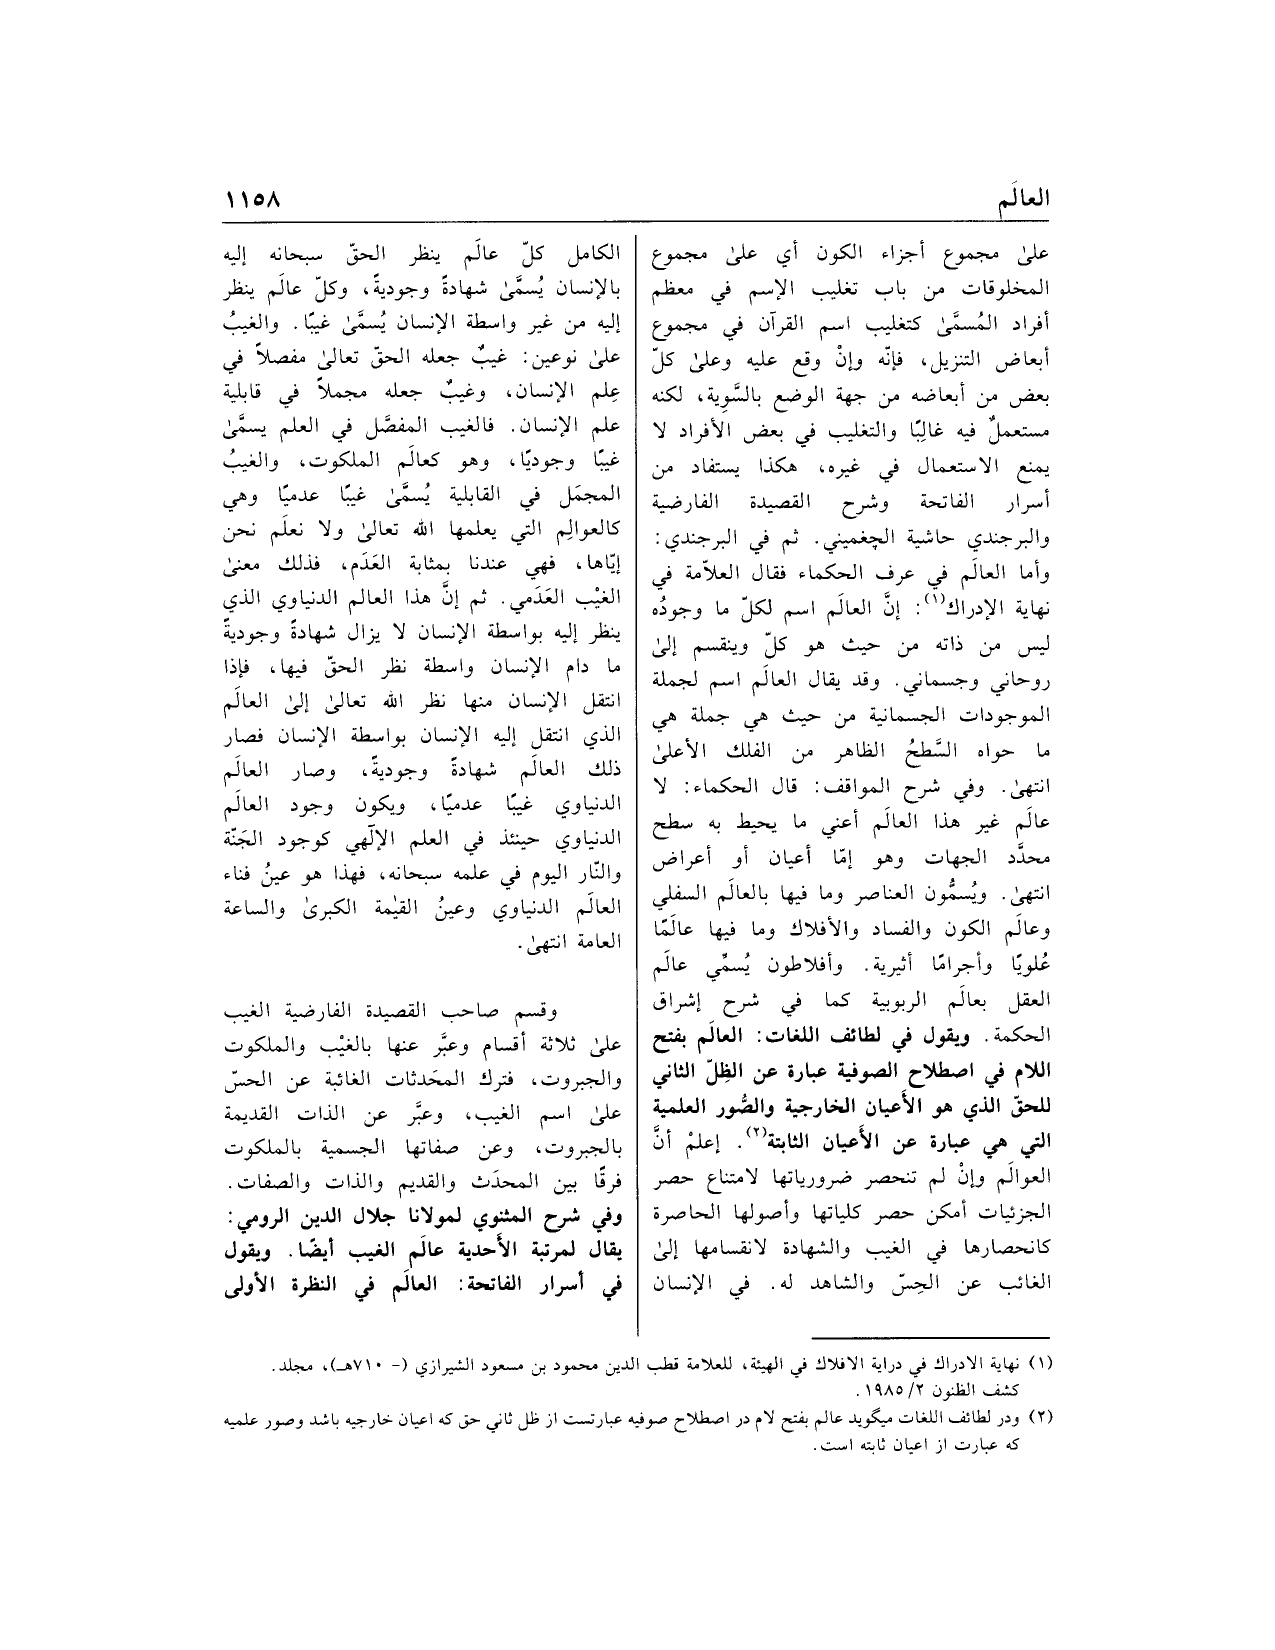 العالَم
١١٥٨
علىٰ مجموع أجزاء الكون أي علىٰ مجموع
المخلوقات من باب تغليب الإسم في معظم
أفراد المُسمَّىٰ كتغليب اسم القرآن في مجموع
أبعاض التنزيل، فإنّه وإنْ وقع عليه وعلىٰ كلّ
بعض من أبعاضه من جهة الوضع بالسَّوِية، لكنه
مستعملٌ فيه غالبًا والتغليب في بعض الأفراد لا
يمنع الاستعمال في غيره، هكذا يستفاد من
أسرار الفاتحة وشرح القصيدة الفارضية
والبرجندي حاشية الچغميني. ثم في البرجندي:
وأما العالَم في عرف الحكماء فقال العلاّمة في
نهاية الإدراك(١): إنَّ العالَم اسم لكلّ ما وجودُه
ليس من ذاته من حيث هو كلّ وينقسم إلىٰ
روحاني وجسماني. وقد يقال العالَم اسم لجملة
الموجودات الجسمانية من حيث هي جملة هي
ما حواه السَّطحُ الظاهر من الفلك الأعلىٰ
انتهىٰ. وفي شرح المواقف: قال الحكماء: لا
عالَم غير هذا العالَم أعني ما يحيط به سطح
محدَّد الجهات وهو إمّا أعيان أو أعراض
انتهىٰ. ويُسمُّون العناصر وما فيها بالعالَم السفلي
وعالَم الكون والفساد والأفلاك وما فيها عالَمًا
عُلويًا وأجرامًا أثيرية. وأفلاطون يُسمِّي عالَم
العقل بعالَم الربوبية كما في شرح إشراق
الحكمة. ويقول في لطائف اللغات: العالَم بفتح
اللام في اصطلاح الصوفية عبارة عن الظِلّ الثاني
للحقّ الذي هو الأَعيان الخارجية والصُّور العلمية
التي هي عبارة عن الأَعيان الثابتة(٢). إعلمْ أنَّ
العوالَم وإنْ لم تنحصر ضرورياتها لامتناع حصر
الجزئيات أمكن حصر كلياتها وأصولها الحاصرة
كانحصارها في الغيب والشهادة لانقسامها إلىٰ
الغائب عن الحِسّ والشاهد له. في الإنسان
الكامل كلّ عالَم ينظر الحقّ سبحانه إليه
بالإنسان يُسمَّىٰ شهادةً وجوديةً، وكلّ عالَم ينظر
إليه من غير واسطة الإنسان يُسمَّىٰ غيبًا. والغيبُ
علىٰ نوعين: غيبٌ جعله الحقّ تعالىٰ مفصلاً في
عِلم الإنسان، وغيبٌ جعله مجملاً في قابلية
علم الإنسان. فالغيب المفصَّل في العلم يسمَّىٰ
غيبًا وجوديًا، وهو كعالَم الملكوت، والغيبُ
المجمَل في القابلية يُسمَّىٰ غيبًا عدميًا وهي
كالعوالِم التي يعلمها الله تعالىٰ ولا نعلَم نحن
إيّاها، فهي عندنا بمثابة العَدَم، فذلك معنىٰ
الغيْب العَدَمي. ثم إنَّ هذا العالم الدنياوي الذي
ينظر إليه بواسطة الإنسان لا يزال شهادةً وجوديةً
ما دام الإنسان واسطة نظر الحقّ فيها، فإذا
انتقل الإنسان منها نظر الله تعالىٰ إلىٰ العالَم
الذي انتقل إليه الإنسان بواسطة الإنسان فصار
ذلك العالَم شهادةً وجوديةً، وصار العالَم
الدنياوي غيبًا عدميًا، ويكون وجود العالَم
الدنياوي حينئذ في العلم الإلٓهي كوجود الجَنّة
والنّار اليوم في علمه سبحانه، فهذا هو عينُ فناء
العالَم الدنياوي وعينُ القيٰمة الكبرىٰ والساعة
العامة انتهىٰ.
وقسم صاحب القصيدة الفارضية الغيب
علىٰ ثلاثة أقسام وعبَّر عنها بالغيْب والملكوت
والجبروت، فترك المحَدثات الغائبة عن الحسّ
علىٰ اسم الغيب، وعبَّر عن الذات القديمة
بالجبروت، وعن صفاتها الجسمية بالملكوت
فرقًا بين المحدَث والقديم والذات والصفات.
وفي شرح المثنوي لمولانا جلال الدين الرومي:
يقال لمرتبة الأَحدية عالَم الغيب أيضًا. ويقول
في أسرار الفاتحة: العالَم في النظرة الأولى
(١) نهاية الادراك في دراية الافلاك في الهيئة، للعلامة قطب الدين محمود بن مسعود الشيرازي (- ٧١٠هـ)، مجلد.
كشف الظنون ٢/ ١٩٨٥.
(٢) ودر لطائف اللغات ميگويد عالم بفتح لام در اصطلاح صوفيه عبارتست از ظل ثاني حق كه اعيان خارجيه باشد وصور علميه
كه عبارت از اعيان ثابته است.